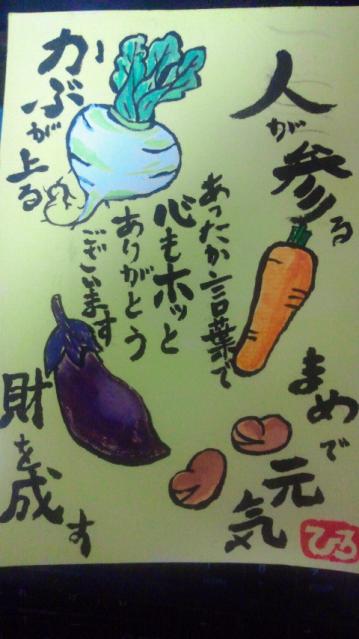 人が参る
かぶが上る
あったか言葉で
心もホッと
ありがとう
ございます
まめで
元気
財を成す
ひろ